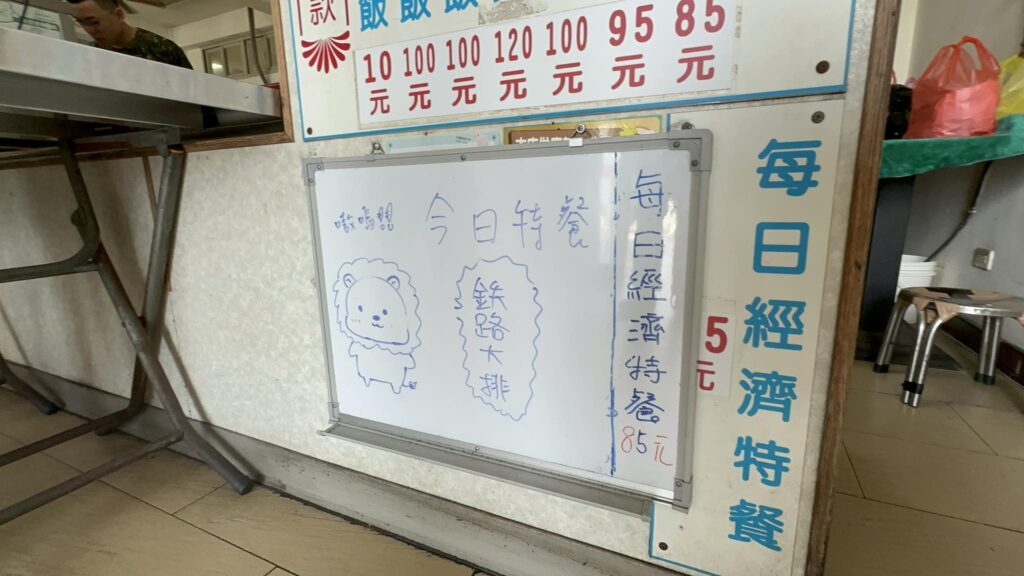 款
飯 飯 飯
10元 100元 100元 120元 100元 95元 85元
嗷嗚
今日特餐
鉄路大排
每日經濟特餐
85元
5元
每日經濟特餐